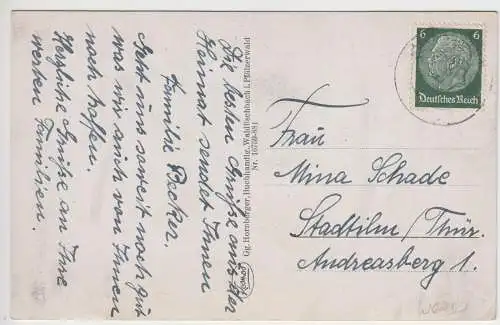 Die besten Grüße aus der
Heimat sendet Ihnen
Familie Becker.
Geht uns soweit noch gut
was wir auch von Ihnen
noch hoffen.
Herzliche Grüße an Ihre
werten Familien.
Gg. Hornberger, Buchhandlg., Waldfischbach i. Pfälzerwald
Nr.
6 6
Deutsches Reich
Frau
Mina Schade
Stadtilm / Thür.
Andreasberg 1.